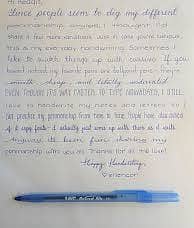 Hi Reddit,
Since people seem to dig my different
penmanship styles, I thought I'd
share a few more
this is my everyday handwriting. Sometimes I
like to switch things up with cursive. If you
haven't noticed my favorite pens are ballpoint pens. They're
smooth, cheap, and totally underrated.
EVEN THOUGH IT'S WAY FASTER TO TYPE NOWADAYS, I STILL
love to handwrite my notes and letters so I
can practice my penmanship from time to time. People have
of it copy fonts. I actually just come up with them as I write.
Anyway, it's been fun sharing my
penmanship with you all. Thanks for all the love!
Happy Handwriting,
BIC